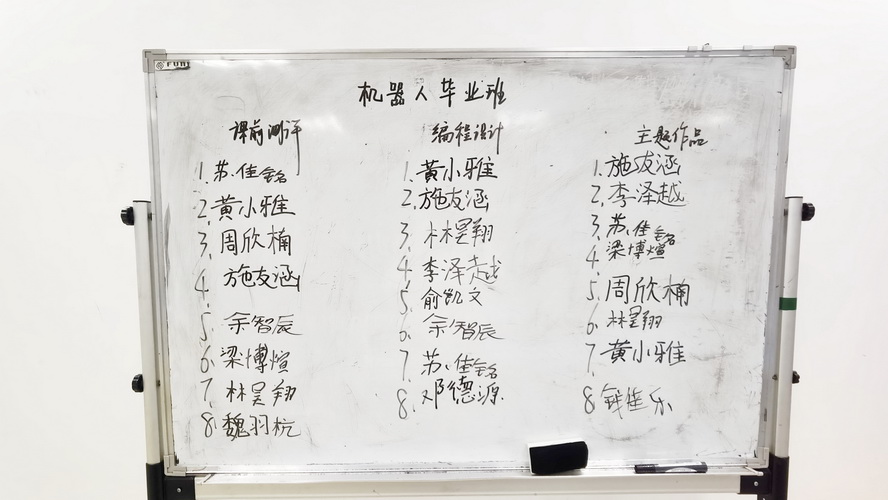 FUNI
机器人毕业班
课前测评
1.苏佳铭
2.黄小雅
3.周欣楠
4.施友涵
5.余智辰
6.梁博煊
7.林昊翔
8.魏羽杭
编程设计
1.黄小雅
2.施友涵
3.林昊翔
4.李泽越
5.俞凯文
6.余智辰
7.苏佳铭
8.邓德源
主题作品
1.施友涵
2.李泽越
3.苏佳铭
4.梁博煊
5.周欣楠
6.林昊翔
7.黄小雅
8.钱佳乐